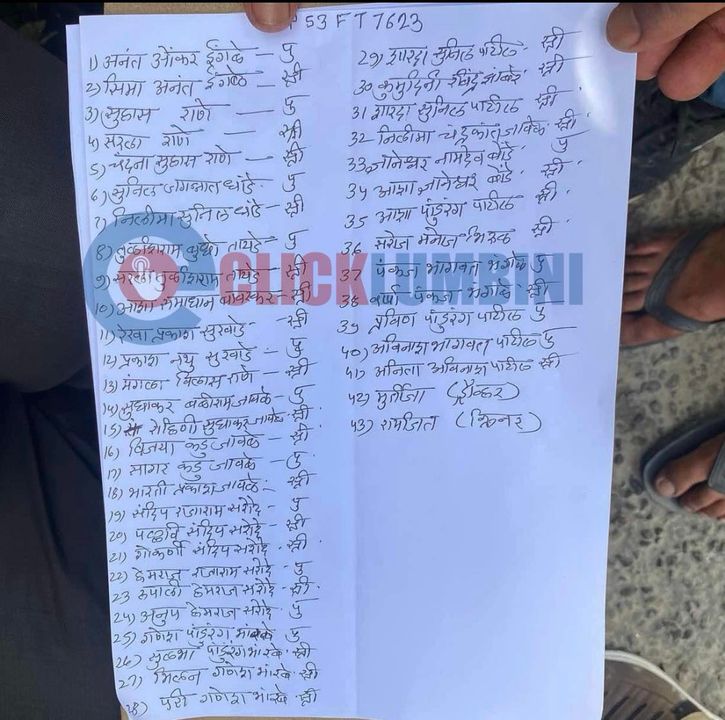 P 53 F T 7623
1) अनंत ओंकार इंगळे — पु
2) सिमा अनंत इंगळे — स्त्री
3) सुहास राणे — पु
4) सरला राणे — स्त्री
5) चंदना सुहास राणे — स्त्री
6) सुनिल जगन्नाथ धांडे - पु
7) निलीमा सुनिल धांडे - स्त्री
8) तुळशिराम बुधो तायडे - पु
9) सरला तुळशिराम तायडे - स्त्री
10) आशा समाधान बावस्कर - स्त्री
11) रेखा प्रकाश सुरवाडे - स्त्री
12) प्रकाश नथु सुरवाडे - पु
13) मंगला विलास राणे - स्त्री
14) सुधाकर बळीराम जावळे - पु
15) रोहिणी सुधाकर जावळे - स्त्री
16) विजया कडु जावळे - स्त्री
17) सागर कडु जावळे - पु
18) भारती प्रकाश जावळे - स्त्री
19) संदिप राजाराम सरोदे - पु
20) पल्लवि संदिप सरोदे - स्त्री
21) गोकर्णी संदिप सरोदे - स्त्री
22) हेमराज राजाराम सरोदे - पु
23 रुपाली हेमराज सरोदे - स्त्री
24) अनुप हेमराज सरोदे - पु
25) गणेश पांडुरंग भारंबे - पु
26) सुलभा पांडुरंग भारंबे - स्त्री
27) मिलन गणेश भारंबे - स्त्री
28) परी गणेश भारंबे - स्त्री
29) शारदा सुनिल पाटील - स्त्री
30 कुमुदिनी रविंद्र झांबरे - स्त्री
31 शारदा सुनिल पाटील स्त्री
32 निलीमा चंद्रकांत जावळे - स्त्री
33 ज्ञानेश्वर नामदेव बोंडे - पु
34 आशा ज्ञानेश्वर बोंडे - स्त्री
35 आशा पांडुरंग पाटील - स्त्री
36 सरोज मनोज भिरुड स्त्री
37 पंकज भागवत भंगाळे पु
38 वर्षा पंकज भंगाळे - स्त्री
39 प्रविण पांडुरंग पाटील पु
40) अविनाश भागवत पाटील पु
41) अनिता अविनाश पाटील स्त्री
42) मुर्तिजा (ड्रायव्हर)
43) रामजित (क्लिनर)
CLICKLUMBINI